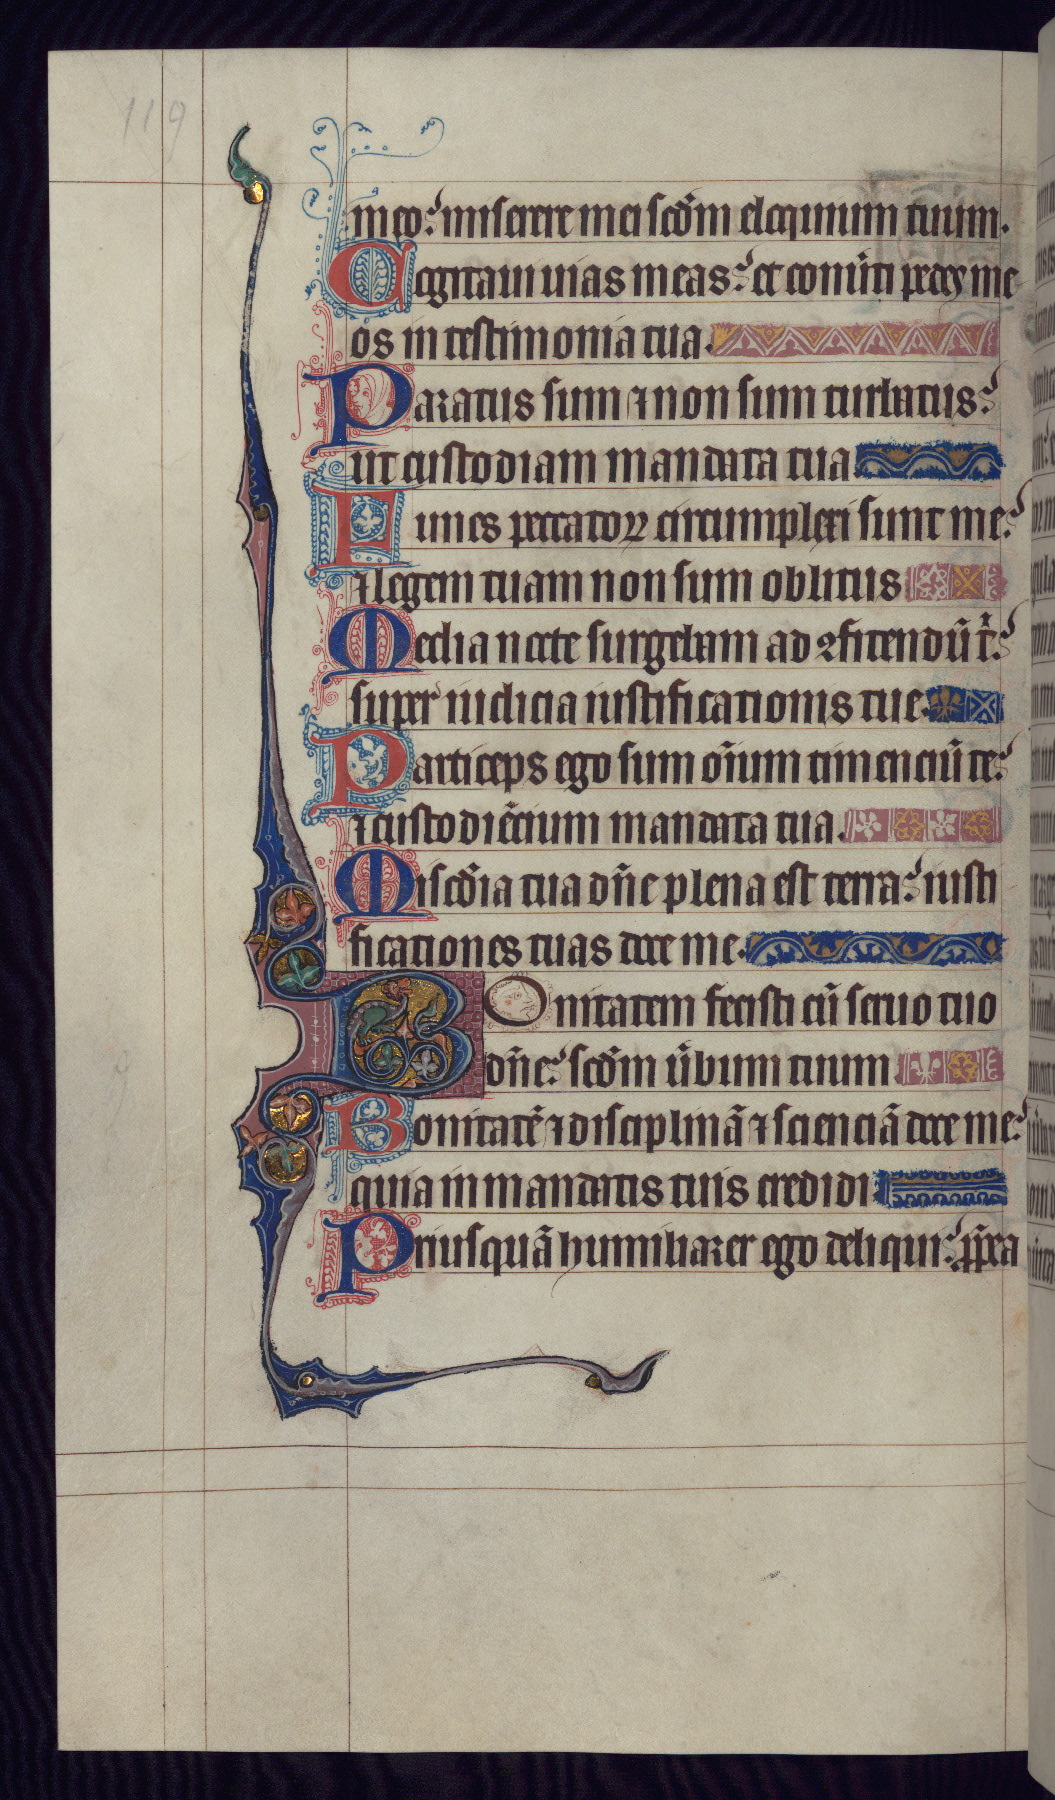 119
meo: miserere mei scd̄m eloquium tuum.
Cogitaui uias meas: et conuǔti pedes me
os in testimonia tua.
Paratus sum ⁊ non sum turbatus:
ut custodiam mandata tua
Funes peccatoꝝ circumplexi sunt me:
⁊ legem tuam non sum oblitus
Media nocte surgebam ad ꝯfitendū t̄:
super iudicia iustificationis tue.
Particeps ego sum om̄ium timenciū te:
⁊ custodiēcium mandata tua.
Miscd̄ia tua dn̄e plena est terra: iusti
ficationes tuas doce me.
Bonitatem fecisti cū seruo tuo
dn̄e: scd̄m ūbum tuum
Bonitatē ⁊ disciplinā ⁊ scienciā doce me:
quia in mandatis tuis credidi
Priusquā humiliarer ego deliqui: ꝓp̄ea